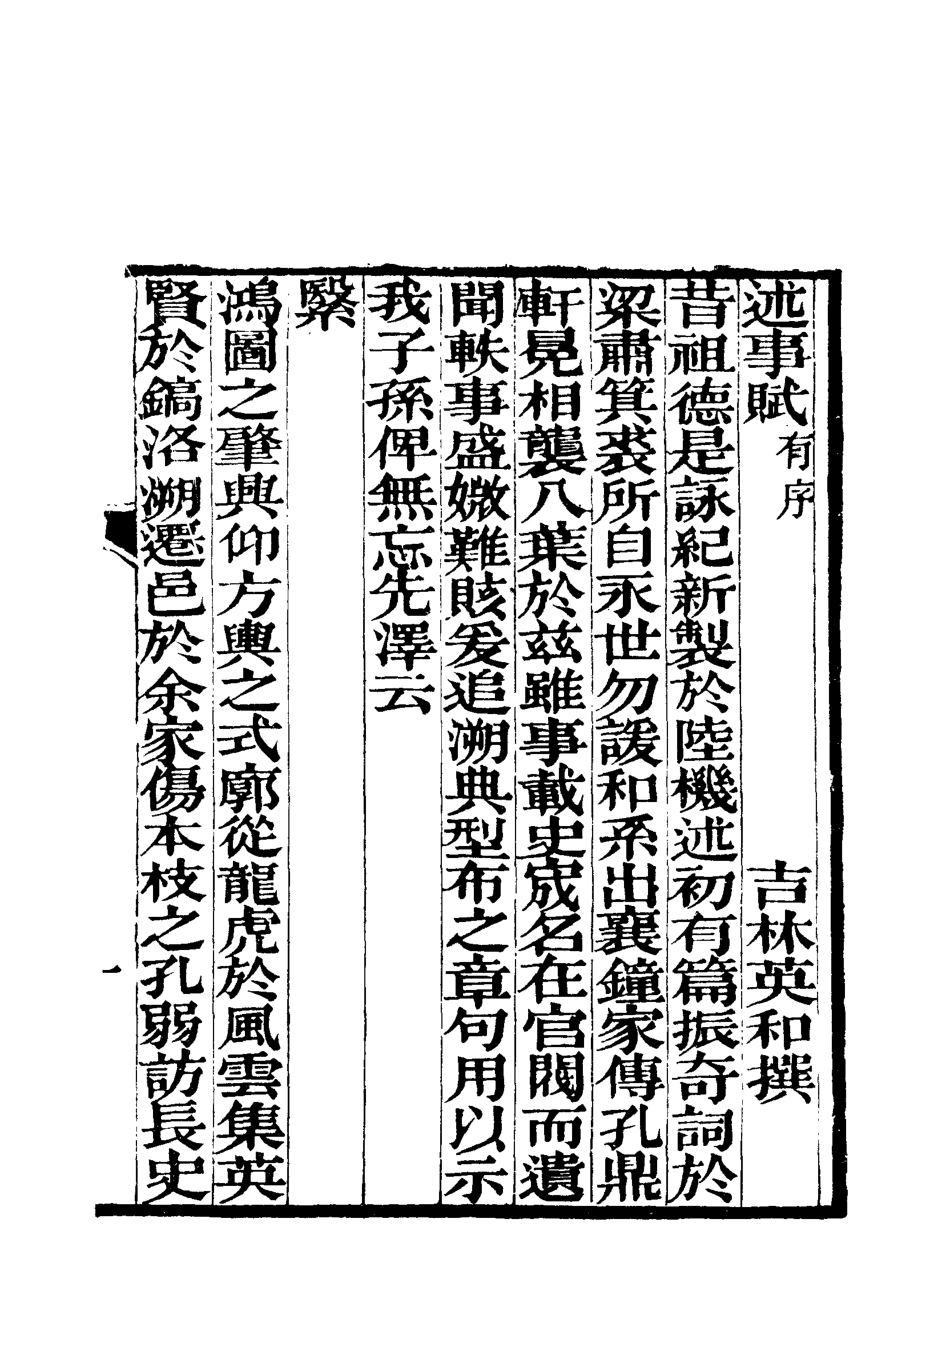 述事賦 有序
吉林英和撰
昔祖德是詠紀新製於陸機述初有篇振奇詞於
梁肅箕裘所自永世勿諼和系出襄鐘家傳孔鼎
軒冕相襲八葉於兹雖事載史宬名在官閥而遺
聞軼事盛媺難賅爰追溯典型布之章句用以示
我子孫俾無忘先澤云
繄
鴻圖之肇興仰方輿之式廓從龍虎於風雲集英
賢於鎬洛溯遷邑於余家傷本枝之孔弱訪長史
一